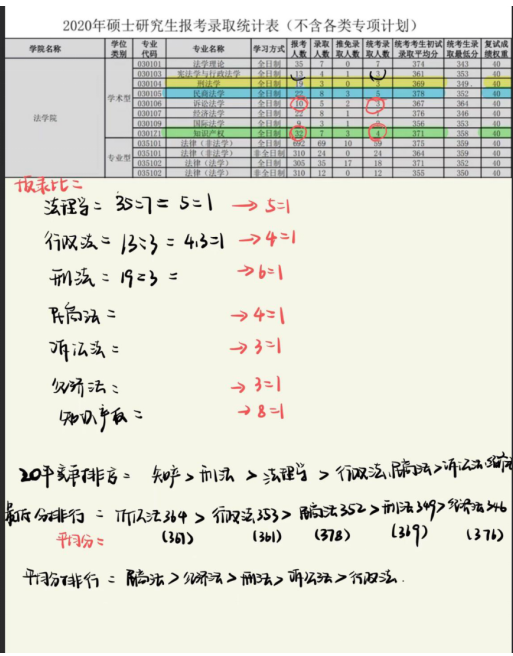 2020年硕士研究生报考录取统计表（不含各类专项计划）
学院名称 学位类别 专业代码 专业名称 学习方式 报考人数 录取人数 推免录取人数 统考录取人数 统考考生初试录取平均分 统考生录取最低分 复试成绩权重
法学院
学术型
030101 法学理论 全日制 35 7 0 7 374 343 40
030103 宪法学与行政法学 全日制 13 4 1 361 353 40
030104 刑法学 全日制 19 3 0 3 369 349 40
030105 民商法学 全日制 8 3 5 378 352 40
030106 诉讼法学 全日制 10 5 2 367 364 40
030107 经济法学 全日制 22 8 1 7 376 346 40
030109 国际法学 全日制 9 3 356 353 40
0301Z1 知识产权 全日制 32 7 3 4 371 358 40
专业型
035101 法律（非法学） 全日制 692 69 10 59 375 359 40
035101 法律（非法学） 非全日制 310 24 0 24 364 359 40
035102 法律（法学） 全日制 305 35 17 18 371 352 40
035102 法律（法学） 非全日制 310 12 0 12 355 350 40
报录比=
法理学= 35:7= 5=1 → 5=1
行政法= 13:3= 4.3=1 → 4=1
刑法= 19=3 = → 6=1
民商法= → 4=1
诉讼法= → 3=1
经济法= → 3=1
知识产权= → 8=1
20年录取排序= 知产>刑法>法理学>行政法,民商法>诉讼法
最低分排行= 诉讼法364>行政法353>民商法352>刑法349>经济法346
平均分= (367) (361) (378) (369) (376)
平均分排行= 民商法>经济法>刑法>诉讼法>行政法.